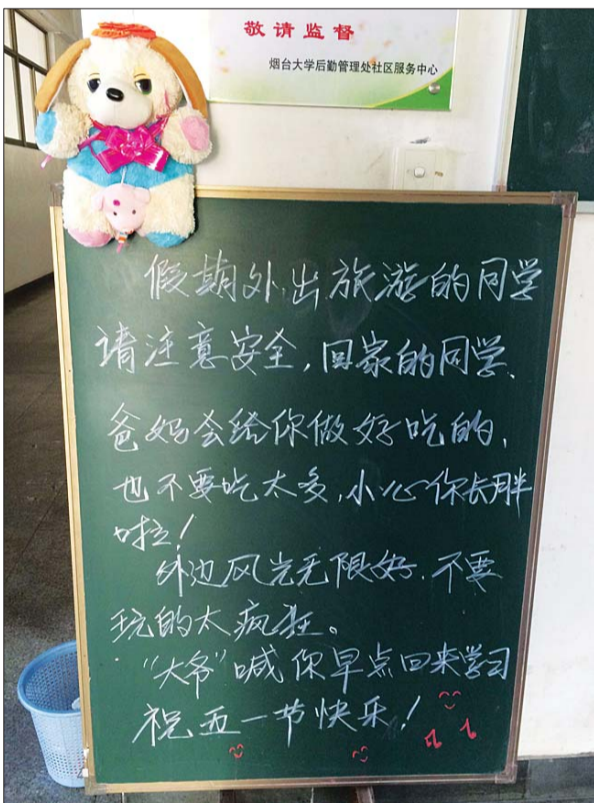 敬请监督
烟台大学后勤管理处社区服务中心
假期外出旅游的同学
请注意安全,回家的同学、
爸妈会给你做好吃的,
也不要吃太多,小心你长胖
啦!
外边风光无限好.不要
玩的太疯狂。
“大爷”喊你早点回来学习
祝五一节快乐!